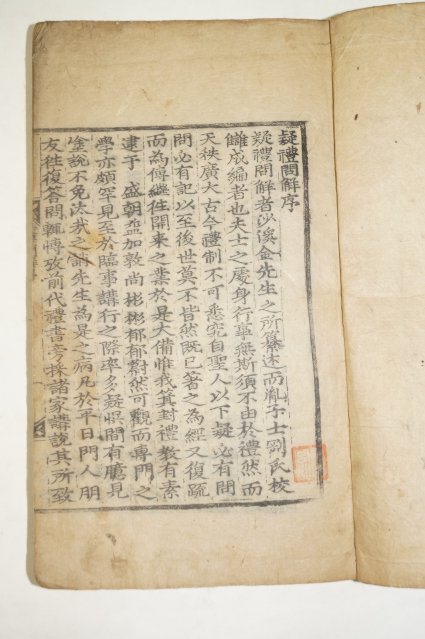 疑禮問解序
疑禮問解者沙溪金先生之所纂述而胤子士剛氏校
讎成編者也夫士之處身行事無斯須不由於禮然而
天秩廣大古今禮制不可悉究自聖人以下疑必有問
問必有記以至後世莫不皆然既已著之為經又復疏
而為傳繼往開来之業於是大備惟我箕封禮教有素
逮于 盛朝益加敦尚彬彬郁郁蔚然可觀而專門之
學亦頗罕見至於臨事講行之際率多疑悞間有臆見
說不免汰哉之誚先生為是之病凡於平日門人朋
友往復答問輒博攷前代禮書旁採諸家講說其所致